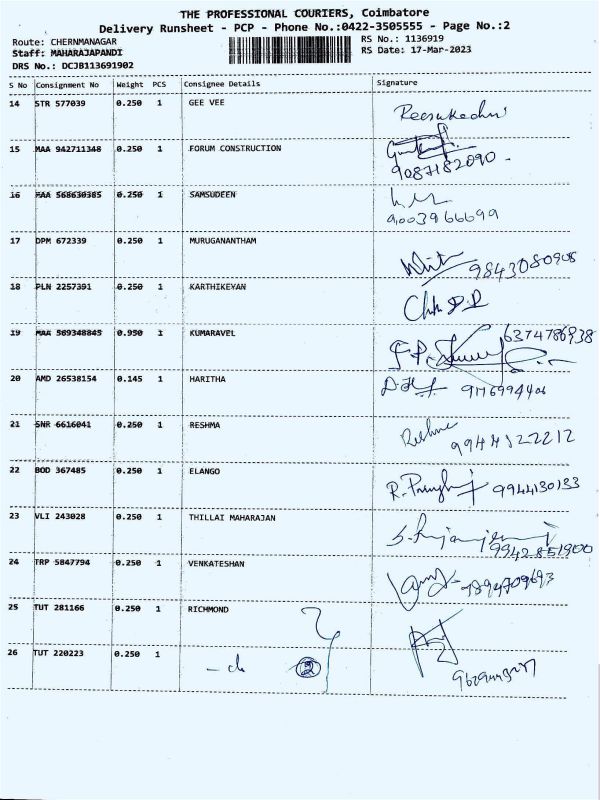 THE PROFESSIONAL COURIERS, Coimbatore
Delivery Runsheet - PCP - Phone No.:0422-3505555 - Page No.:2
Route: CHERNMANAGAR
RS No.: 1136919
Staff: MAHARAJAPANDI
RS Date: 17-Mar-2023
DRS No.: DCJB113691902
S No Consignment No Weight PCS Consignee Details Signature
14 STR 577039 0.250 1 GEE VEE
15 MAA 942711348 0.250 1 FORUM CONSTRUCTION
9087182090 -
16 MAA 568630385 0.250 1 SAMSUDEEN
9003966699
17 DPM 672339 0.250 1 MURUGANANTHAM
9843080908
18 PLN 2257391 0.250 1 KARTHIKEYAN
19 MAA 569348845 0.950 1 KUMARAVEL 6374786938
20 AMD 26538154 0.145 1 HARITHA
21 SNR 6616041 0.250 1 RESHMA Reshma
9944122212
22 BOD 367485 0.250 1 ELANGO 9944130133
23 VLI 243028 0.250 1 THILLAI MAHARAJAN
9942851900
24 TRP 5847794 0.250 1 VENKATESHAN
25 TUT 281166 0.250 1 RICHMOND
26 TUT 220223 0.250 1